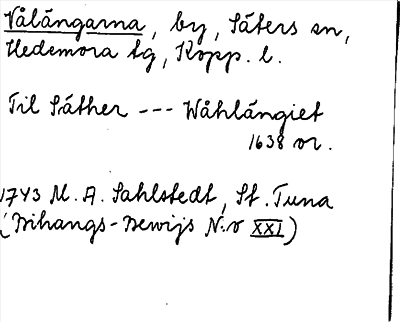 Vålängarna, by, Säters sn,
Hedemora tg, Kopp. l.
Til Säther --- Wåhlängiet
1638 or.
1743 M. A. Sahlstedt, St. Tuna
(Bihangs-Bewijs N:o XXI)